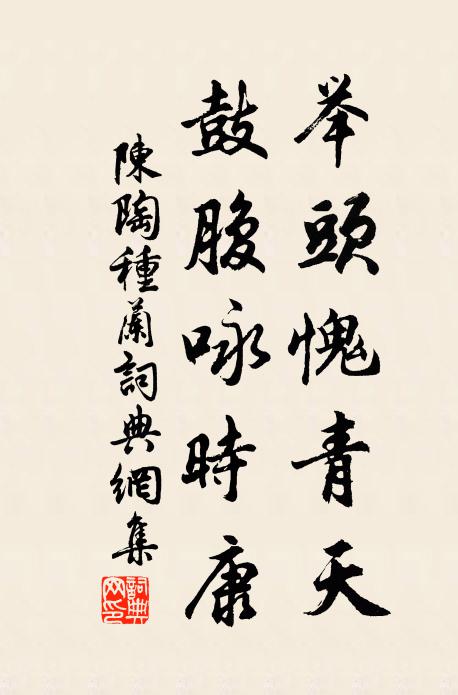 举頭愧青天
鼓腹咏時康
陳陶種蘭詞典網集
詞典網印